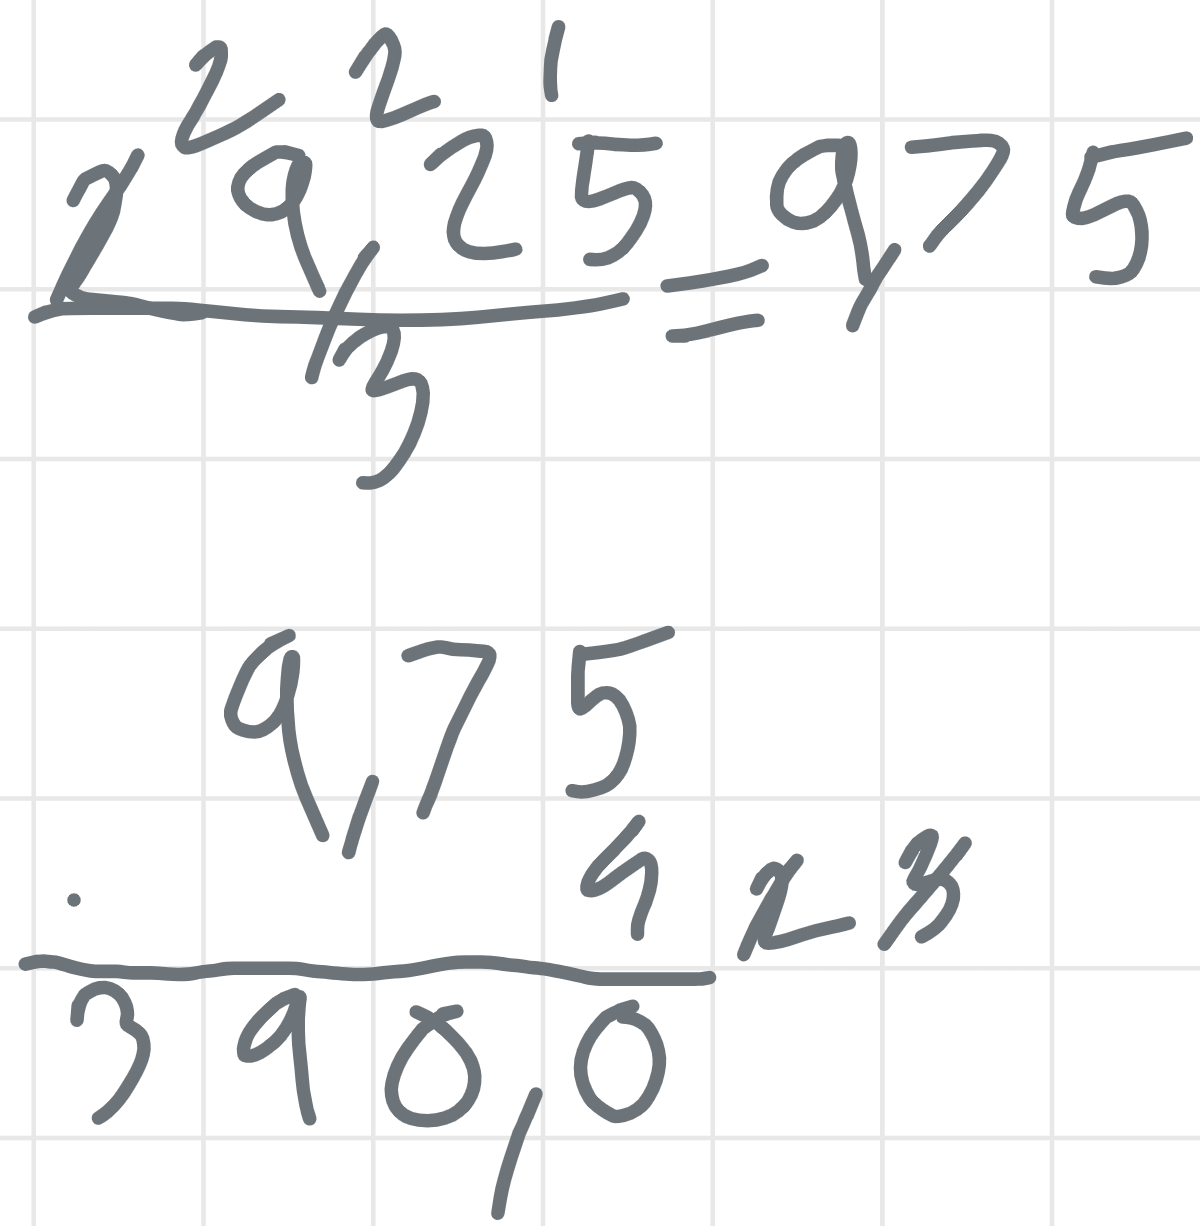 2 2 1
29,25 = 9,75
3
9,75
4 2 3
390,0